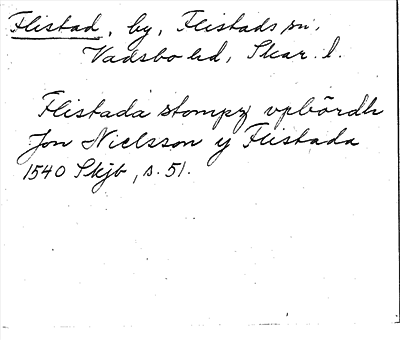 Flistad, by, Flistads sn,
Vadsbo hd, Skar. l.
Flistada stompn vpbördh
Jon Nielsson y Flistada
1540 Skjb, s. 51.